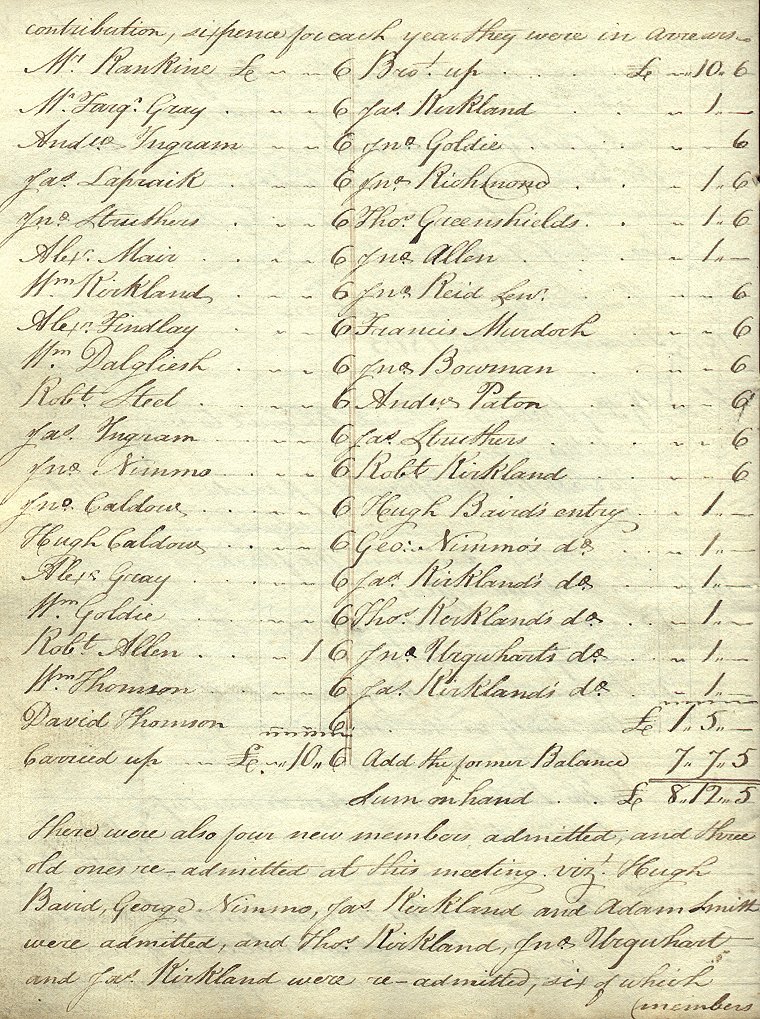 contribution, sixpence for each year they were in Arrears.
Mr. Rankine £ " " 6 Brot. up . . . . £ " 10 " 6
Mr. Farqr. Gray . " " 6 Jas. Kirkland . . " 1 " —
Andw. Ingram " " 6 Jno. Goldie . . " " 6
Jas. Lapraik . " " 6 Jno. Richmond . . " 1 " 6
Jno. Struthers . " " 6 Thos. Greenshields . . " 1 " 6
Alexr. Mair . . " " 6 Jno. Allen . . " 1 " —
Wm. Kirkland . " " 6 Jno. Reid Senr. . . " " 6
Alexr. Findlay . " " 6 Francis Murdoch " " 6
Wm. Dalgliesh . " " 6 Jno. Bowman . . " " 6
Robt. Steel . . " " 6 Andw. Paton . . " " 6
Jas. Ingram . " " 6 Jas. Struthers . . " " 6
Jno. Nimmo . " " 6 Robt. Kirkland . . " " 6
Jno. Caldow . " " 6 Hugh Baird's entry . " 1 " —
Hugh Caldow . " " 6 Geo. Nimmo's do. . . " 1 " —
Alexr. Gray . . " " 6 Jas. Kirkland's do. . . " 1 " —
Wm. Goldie . . " " 6 Thos. Kerkland's do. . . " 1 " —
Robt. Allen . . . " 1 6 Jno. Urquhart's do. . . " 1 " —
Wm. Thomson . " " 6 Jas. Kirkland's do. . . " 1 " —
David Thomson 6 . . . . £ 1 " 5 " —
Carried up . . £ " 10 " 6 Add the former Balance 7 " 7 " 5
Sum on hand . . . £ 8 " 12 " 5
There were also four new members admitted, and three
old ones re-admitted at this meeting. vizt. Hugh
Baird, George Nimmo, Jas. Kirkland and Adam Smith
were admitted, and Thos. Kirkland, Jno. Urquhart
and Jas. Kirkland were re-admitted, six of which
(members